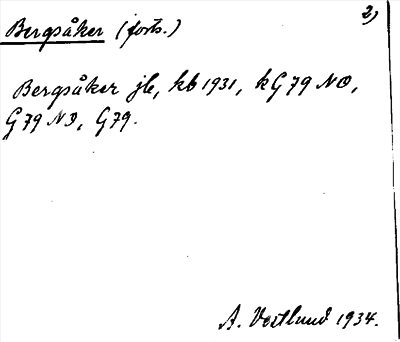 Bergsåker (forts.)
2)
Bergsåker jb, kb 1931, kG79 NO,
G79 NO, G79.
A. Vestlund 1934.